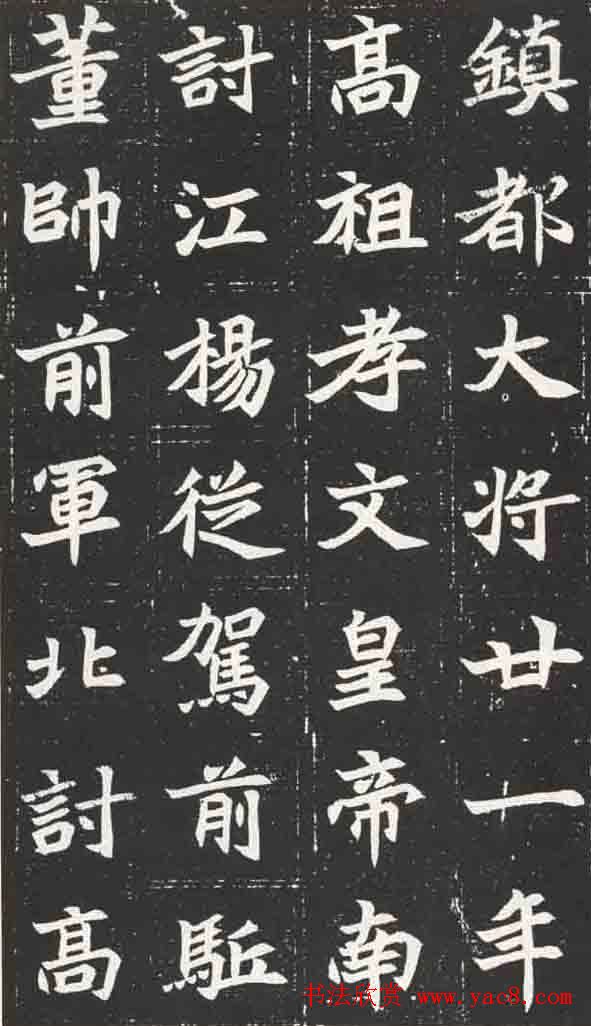 鎮都大将廿一年
髙祖孝文皇帝南
討江楊從駕前駈
董帥前軍北討髙
书法欣赏 www.yac8.com